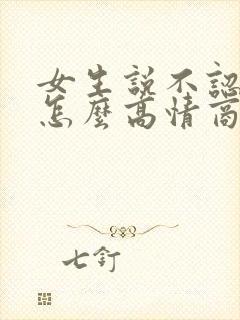 女生說不認
怎麼高情商
七釘